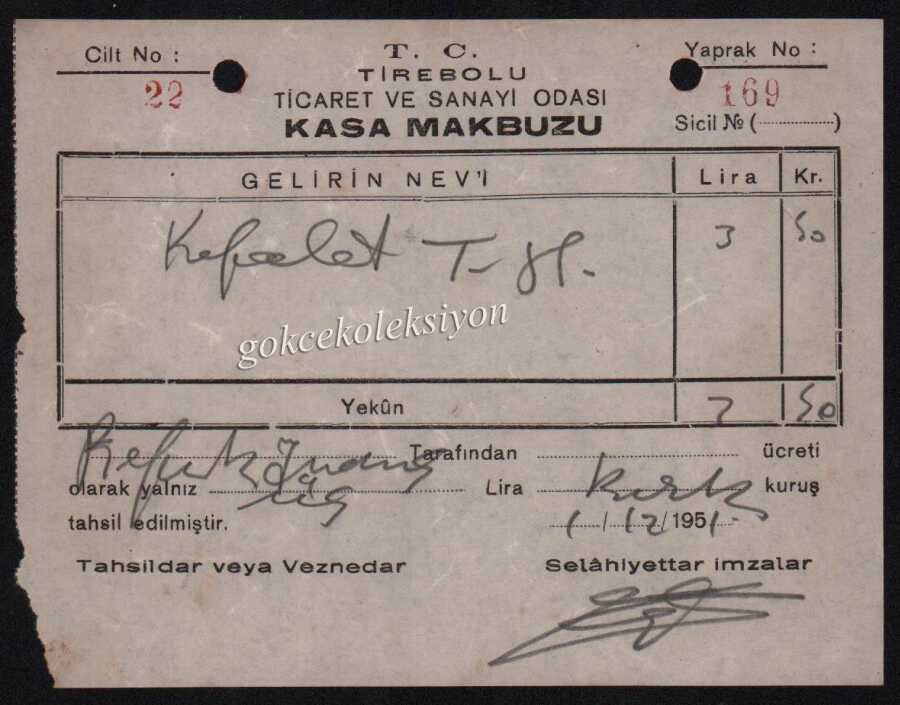 Cilt No :
22
T. C.
TİREBOLU
TİCARET VE SANAYİ ODASI
KASA MAKBUZU
Yaprak No :
169
Sicil № (................)
GELİRİN NEV'İ Lira Kr.
Kefalet T- 3 50
gokcekoleksiyon
Yekûn 3 50
Tarafından ücreti
olarak yalnız üç Lira kuruş
tahsil edilmiştir. 1/12/1951
Tahsildar veya Veznedar Selâhiyettar imzalar